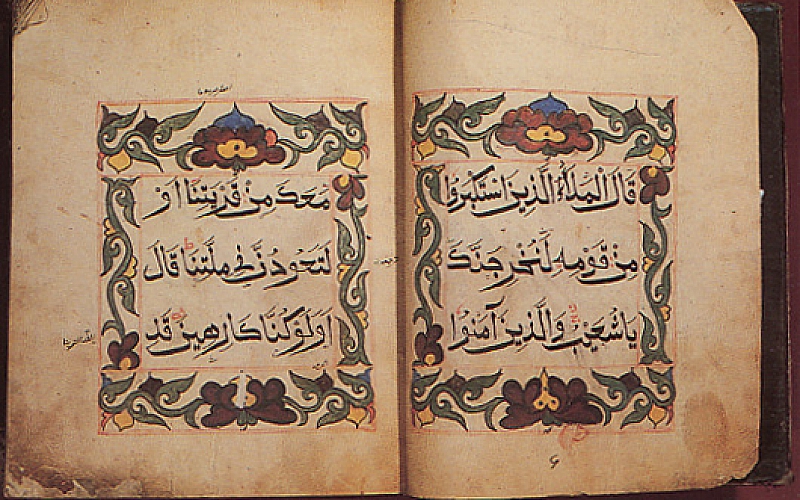 قَالَ الْمَلَأُ الَّذِينَ اسْتَكْبَرُوا
مِنْ قَوْمِهِ لَنُخْرِجَنَّكَ
يَاشُعَيْبُ وَالَّذِينَ آمَنُوا
مَعَكَ مِنْ قَرْيَتِنَا أَوْ
لَتَعُودُنَّ فِي مِلَّتِنَا قَالَ
أَوَلَوْ كُنَّا كَارِهِينَ قَدِ